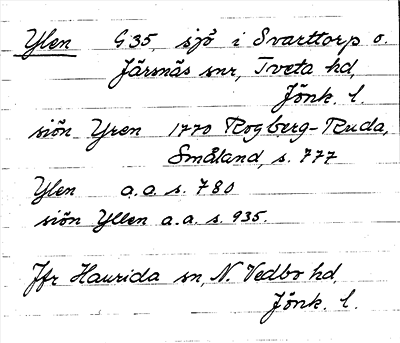 Ylen G35, sjö i Svarttorp o.
Järsnäs snr, Tveta hd,
Jönk. l.
siön Yren 1770 Rogberg-Ruda,
Småland, s. 777
Ylen a.a. s. 780
siön Yllen a.a. s. 935.
Jfr Haurida sn, N. Vedbo hd,
Jönk. l.